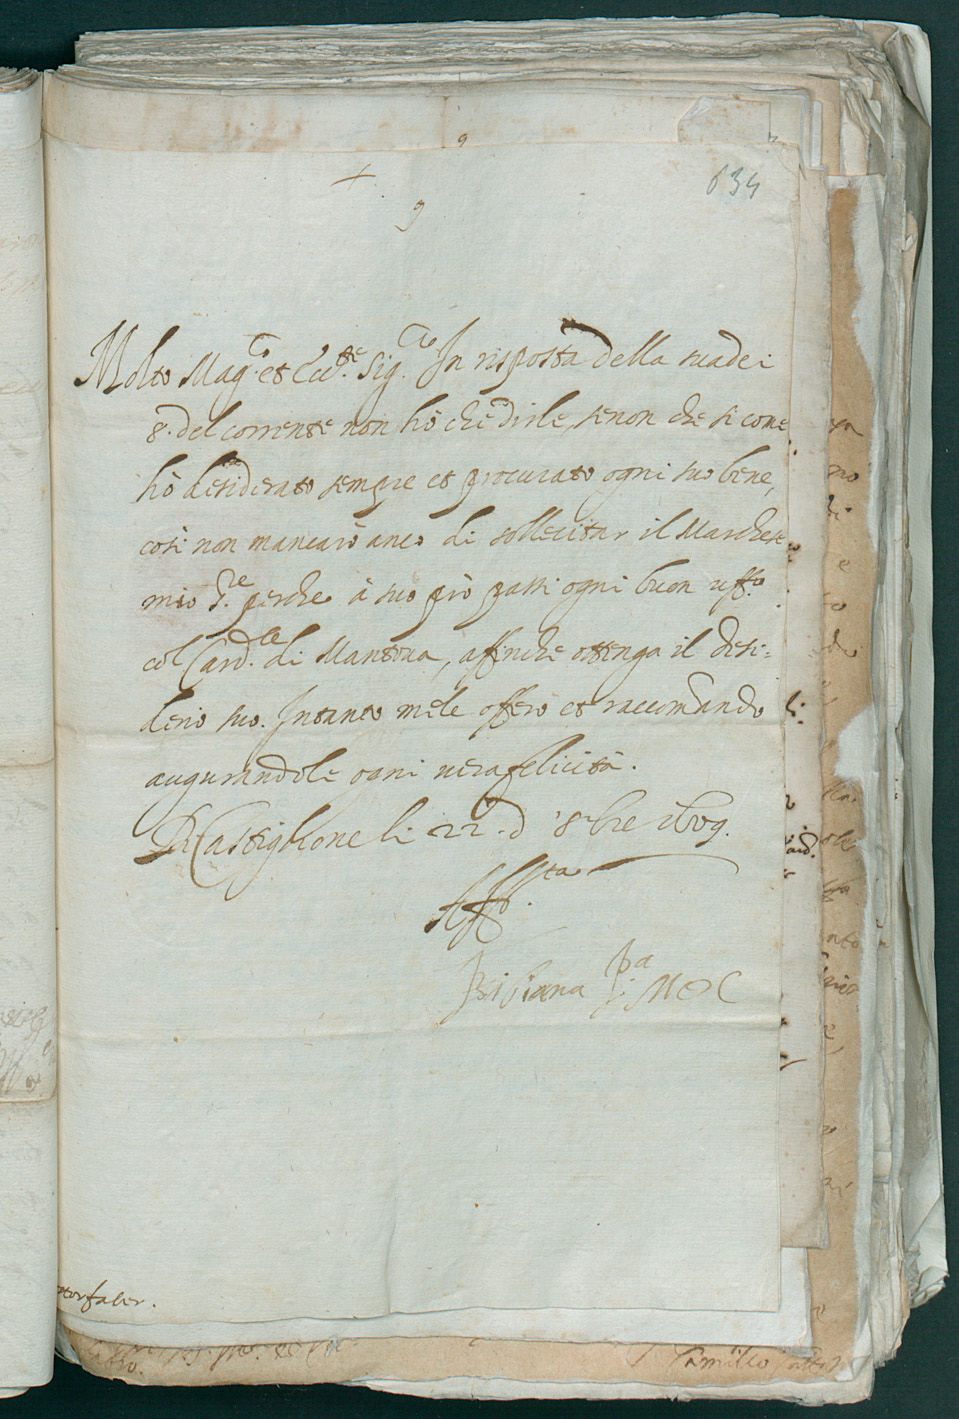 634
9
Molto Mag.co et Ecc.te Sig.re In risposta della sua de i
8. del corrente non hò che dirle, se non che si come
hò desiderato sempre et procurato ogni suo bene,
così non mancarò anco di sollecitar il Marchese
mio S.re perche à suo prò passi ogni buon uff.o
col Card.le di Mantova, affinche ottenga il desi=
derio suo. Intanto me le offero et raccomando
augurandole ogni vera felicità.
Di Castiglione li 22. d 8bre
Aff.ta
Bibiana